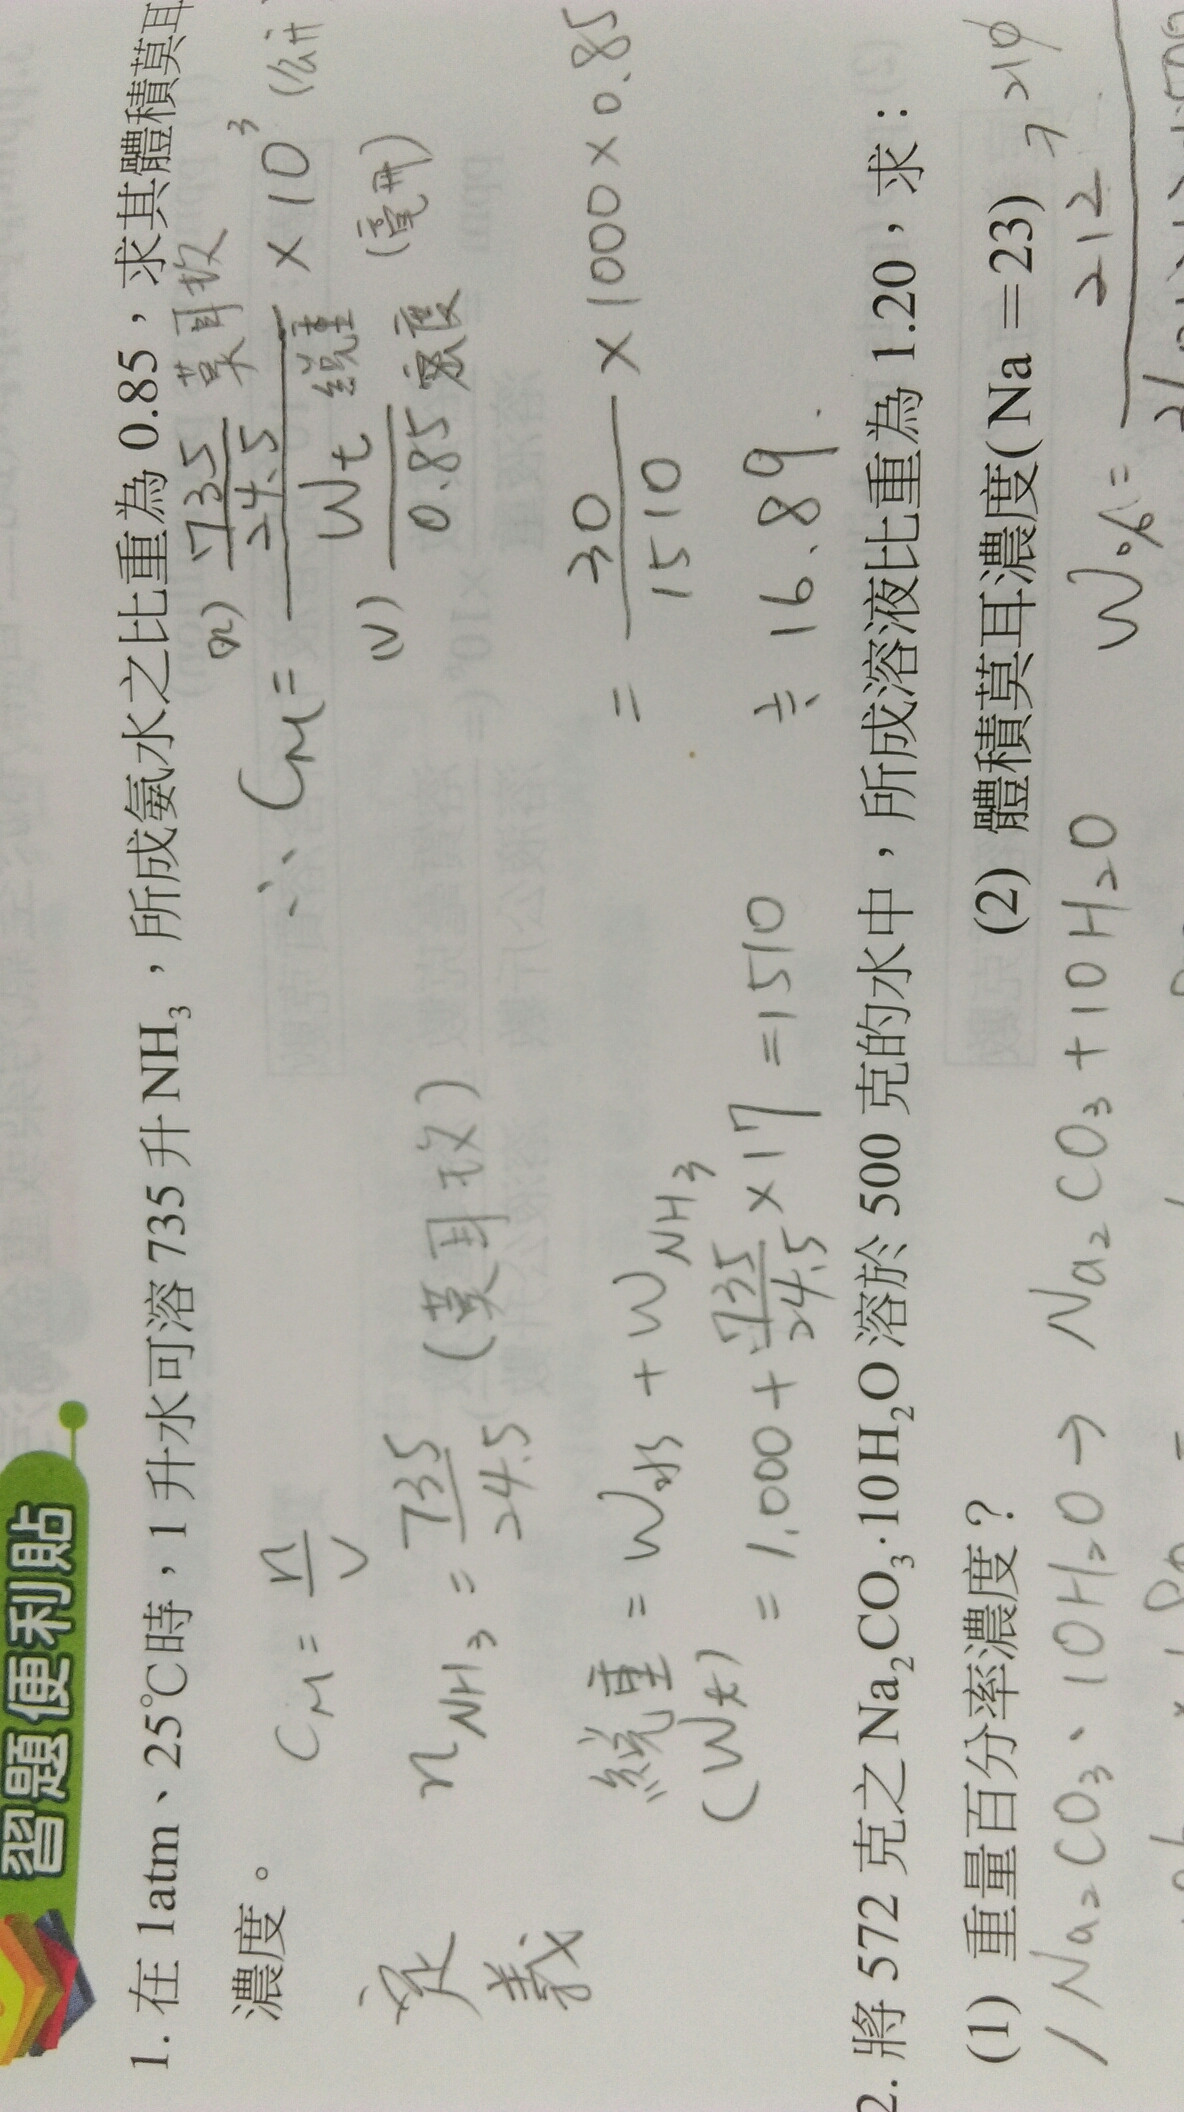 習題便利貼
1. 在 1atm、25℃時，1 升水可溶 735 升 NH₃，所成氨水之比重為 0.85，求其體積莫耳
濃度。
定義
C_M = n/V
n_NH₃ = 735/24.5 (莫耳数)
総重 = W水 + W_NH₃
(Wt) = 1,000 + 735/24.5 × 17 = 1510
(n) 735/24.5 莫耳数
∴ C_M = ──── × 10³ (公升)
(V) Wt 総重 / 0.85 密度 (毫升)
= 30/1510 × 1000 × 0.85
≒ 16.89.
2. 將 572 克之 Na₂CO₃·10H₂O 溶於 500 克的水中，所成溶液比重為 1.20，求：
(1) 重量百分率濃度？ (2) 體積莫耳濃度(Na＝23)
Na₂CO₃、10H₂O → Na₂CO₃ + 10H₂O
W% = 212